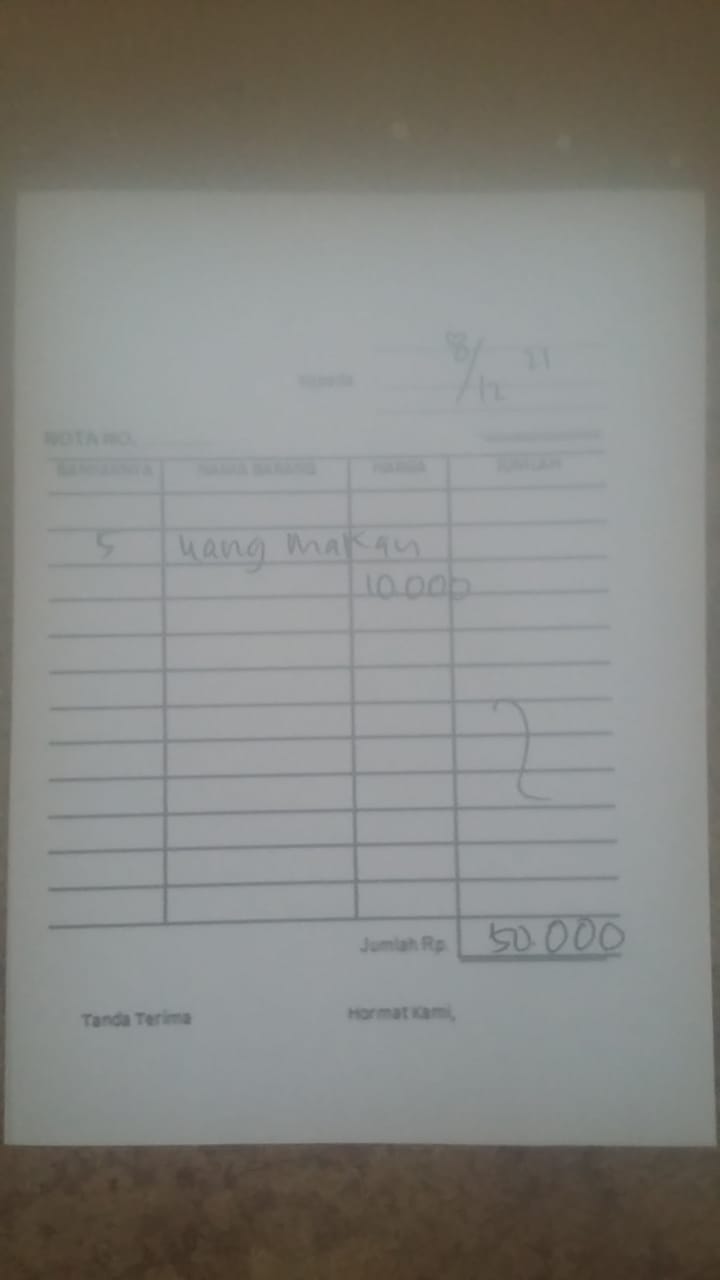 8/12 21
Kepada
NOTA NO.
BANYAKNYA NAMA BARANG HARGA JUMLAH
5 uang makan
10.000
Jumlah Rp. 50.000
Tanda Terima Hormat Kami,